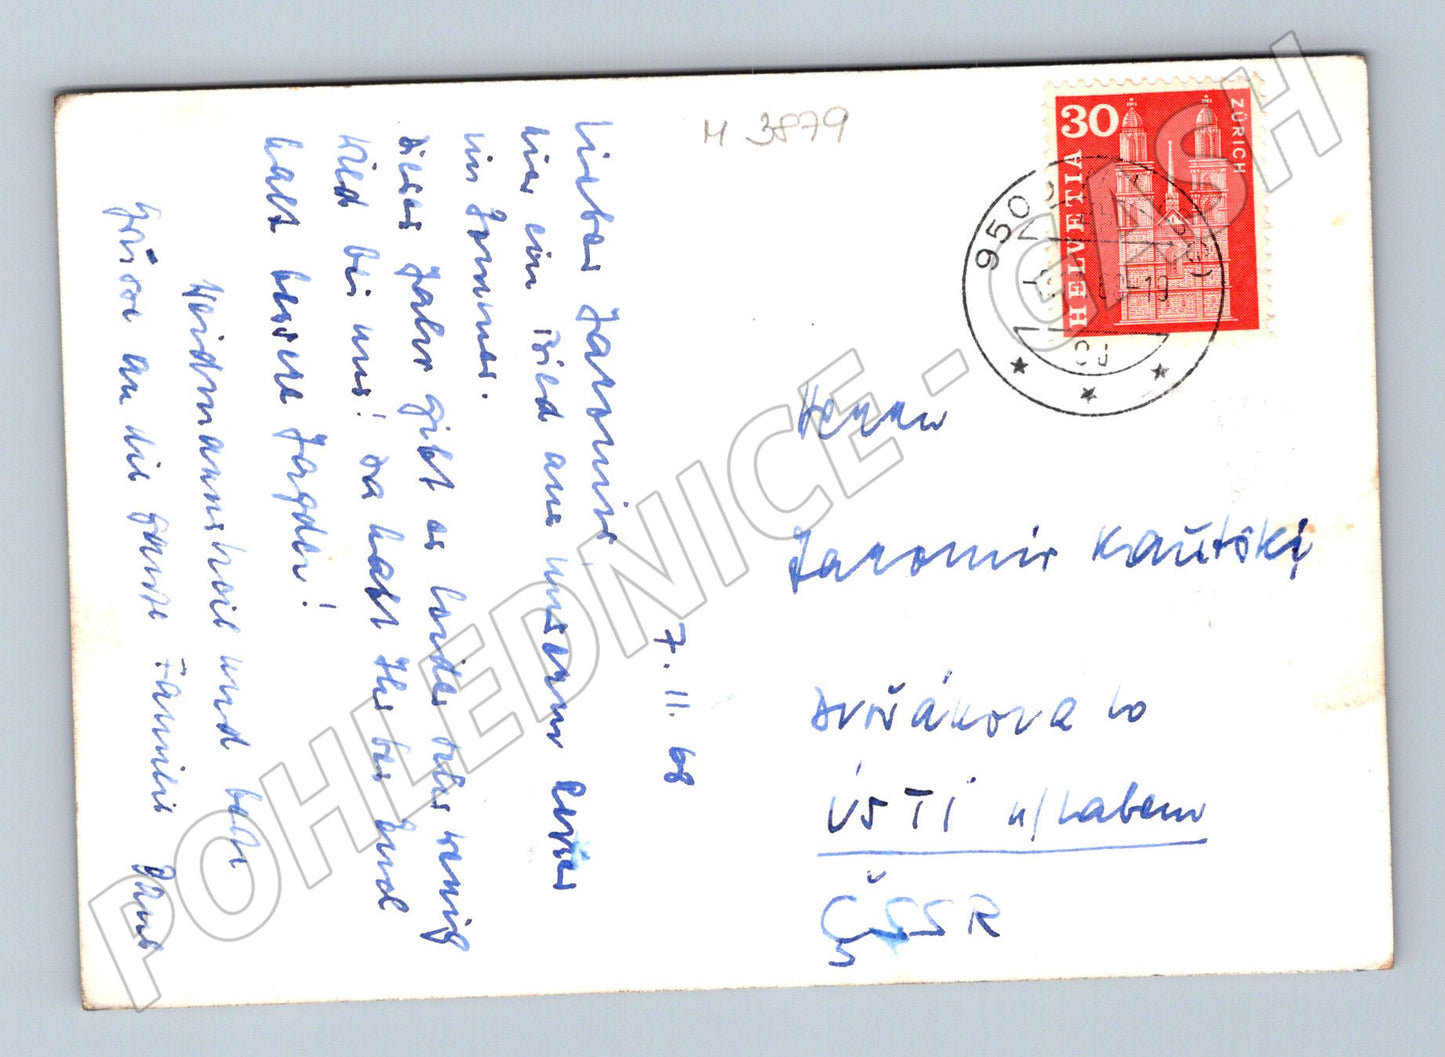 M 3879
30
HELVETIA
ZÜRICH
9500
19
7. 11. 68
Lieber Jaromir,
hier ein Bild aus unserm
im Sommer.
Dieses Jahr gibt es leider sehr wenig
Wild bei uns! Da habt Ihr bei Euch
halt bessere Jagden!
Weidmannsheil und beste
Grüsse an die ganze Familie Hans
Herrn
Jaromir Kautski
Dvořákova 10
ÚSTÍ n/Labem
ČSSR
POHLEDNICE - CASH